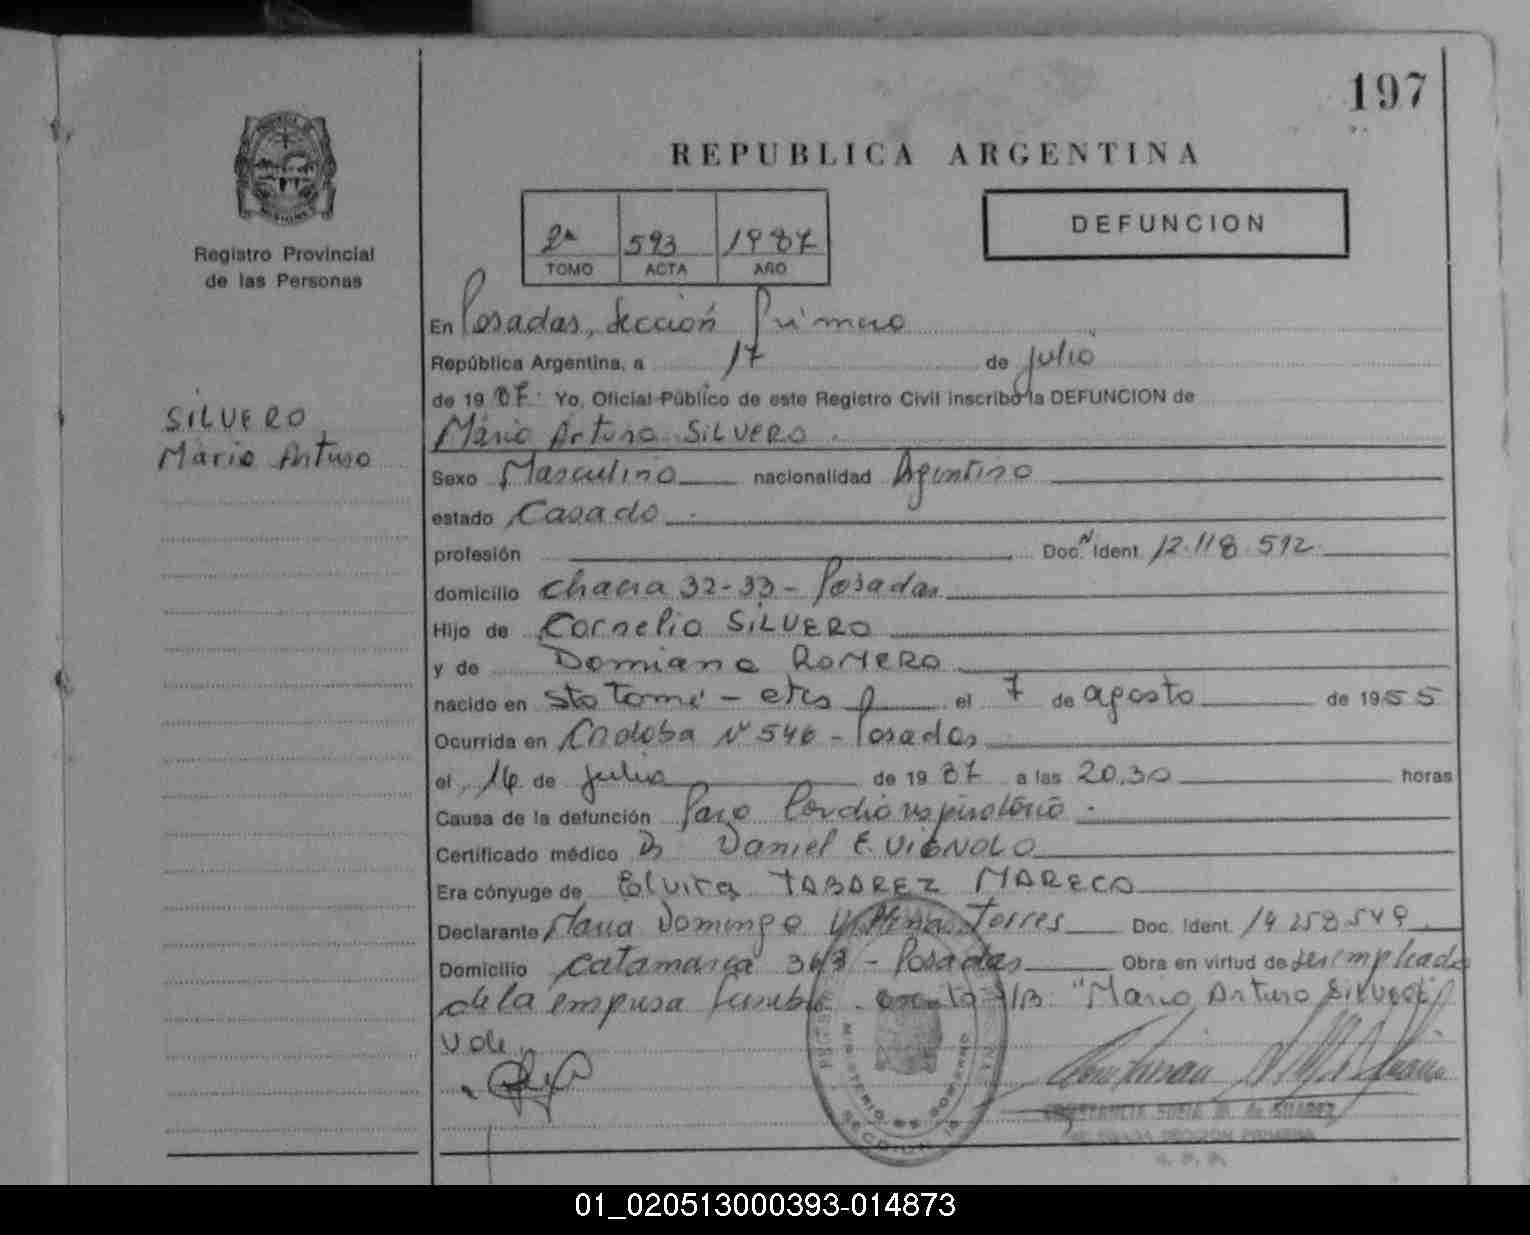 197
REPUBLICA ARGENTINA
2ª 593 1987
TOMO ACTA AÑO
DEFUNCION
Registro Provincial
de las Personas
SILVERO
Mario Arturo
En Posadas, Sección Primera
República Argentina, a 17 de julio
de 1987. Yo, Oficial Público de este Registro Civil inscribo la DEFUNCION de
Mario Arturo SILVERO.
Sexo Masculino nacionalidad Argentino
estado Casado.
profesión Doc. N Ident. 12.118.592
domicilio Chacra 32-33 - Posadas
Hijo de Cornelio SILVERO
y de Domiana ROMERO
nacido en Sto Tomé - el 7 de agosto de 1955
Ocurrida en Córdoba Nº 546 - Posadas
el 16 de julio de 1987 a las 20.30 horas
Causa de la defunción Paro Cardiorespiratorio.
Certificado médico Dr Daniel E. VIGNOLO
Era cónyuge de Elvira TABAREZ MARECO
Declarante Domingo Torres Doc. Ident. 14.258.549
Domicilio Catamarca 363 - Posadas Obra en virtud de ser empleado
de la empresa fúnebre. S/B: "Mario Arturo Silvero"
Vale.
MINISTERIO DE GOBIERNO
SECCION 1ª
CONSTANCIA SOFIA M. de SUAREZ
SECCION PRIMERA
01_020513000393-014873